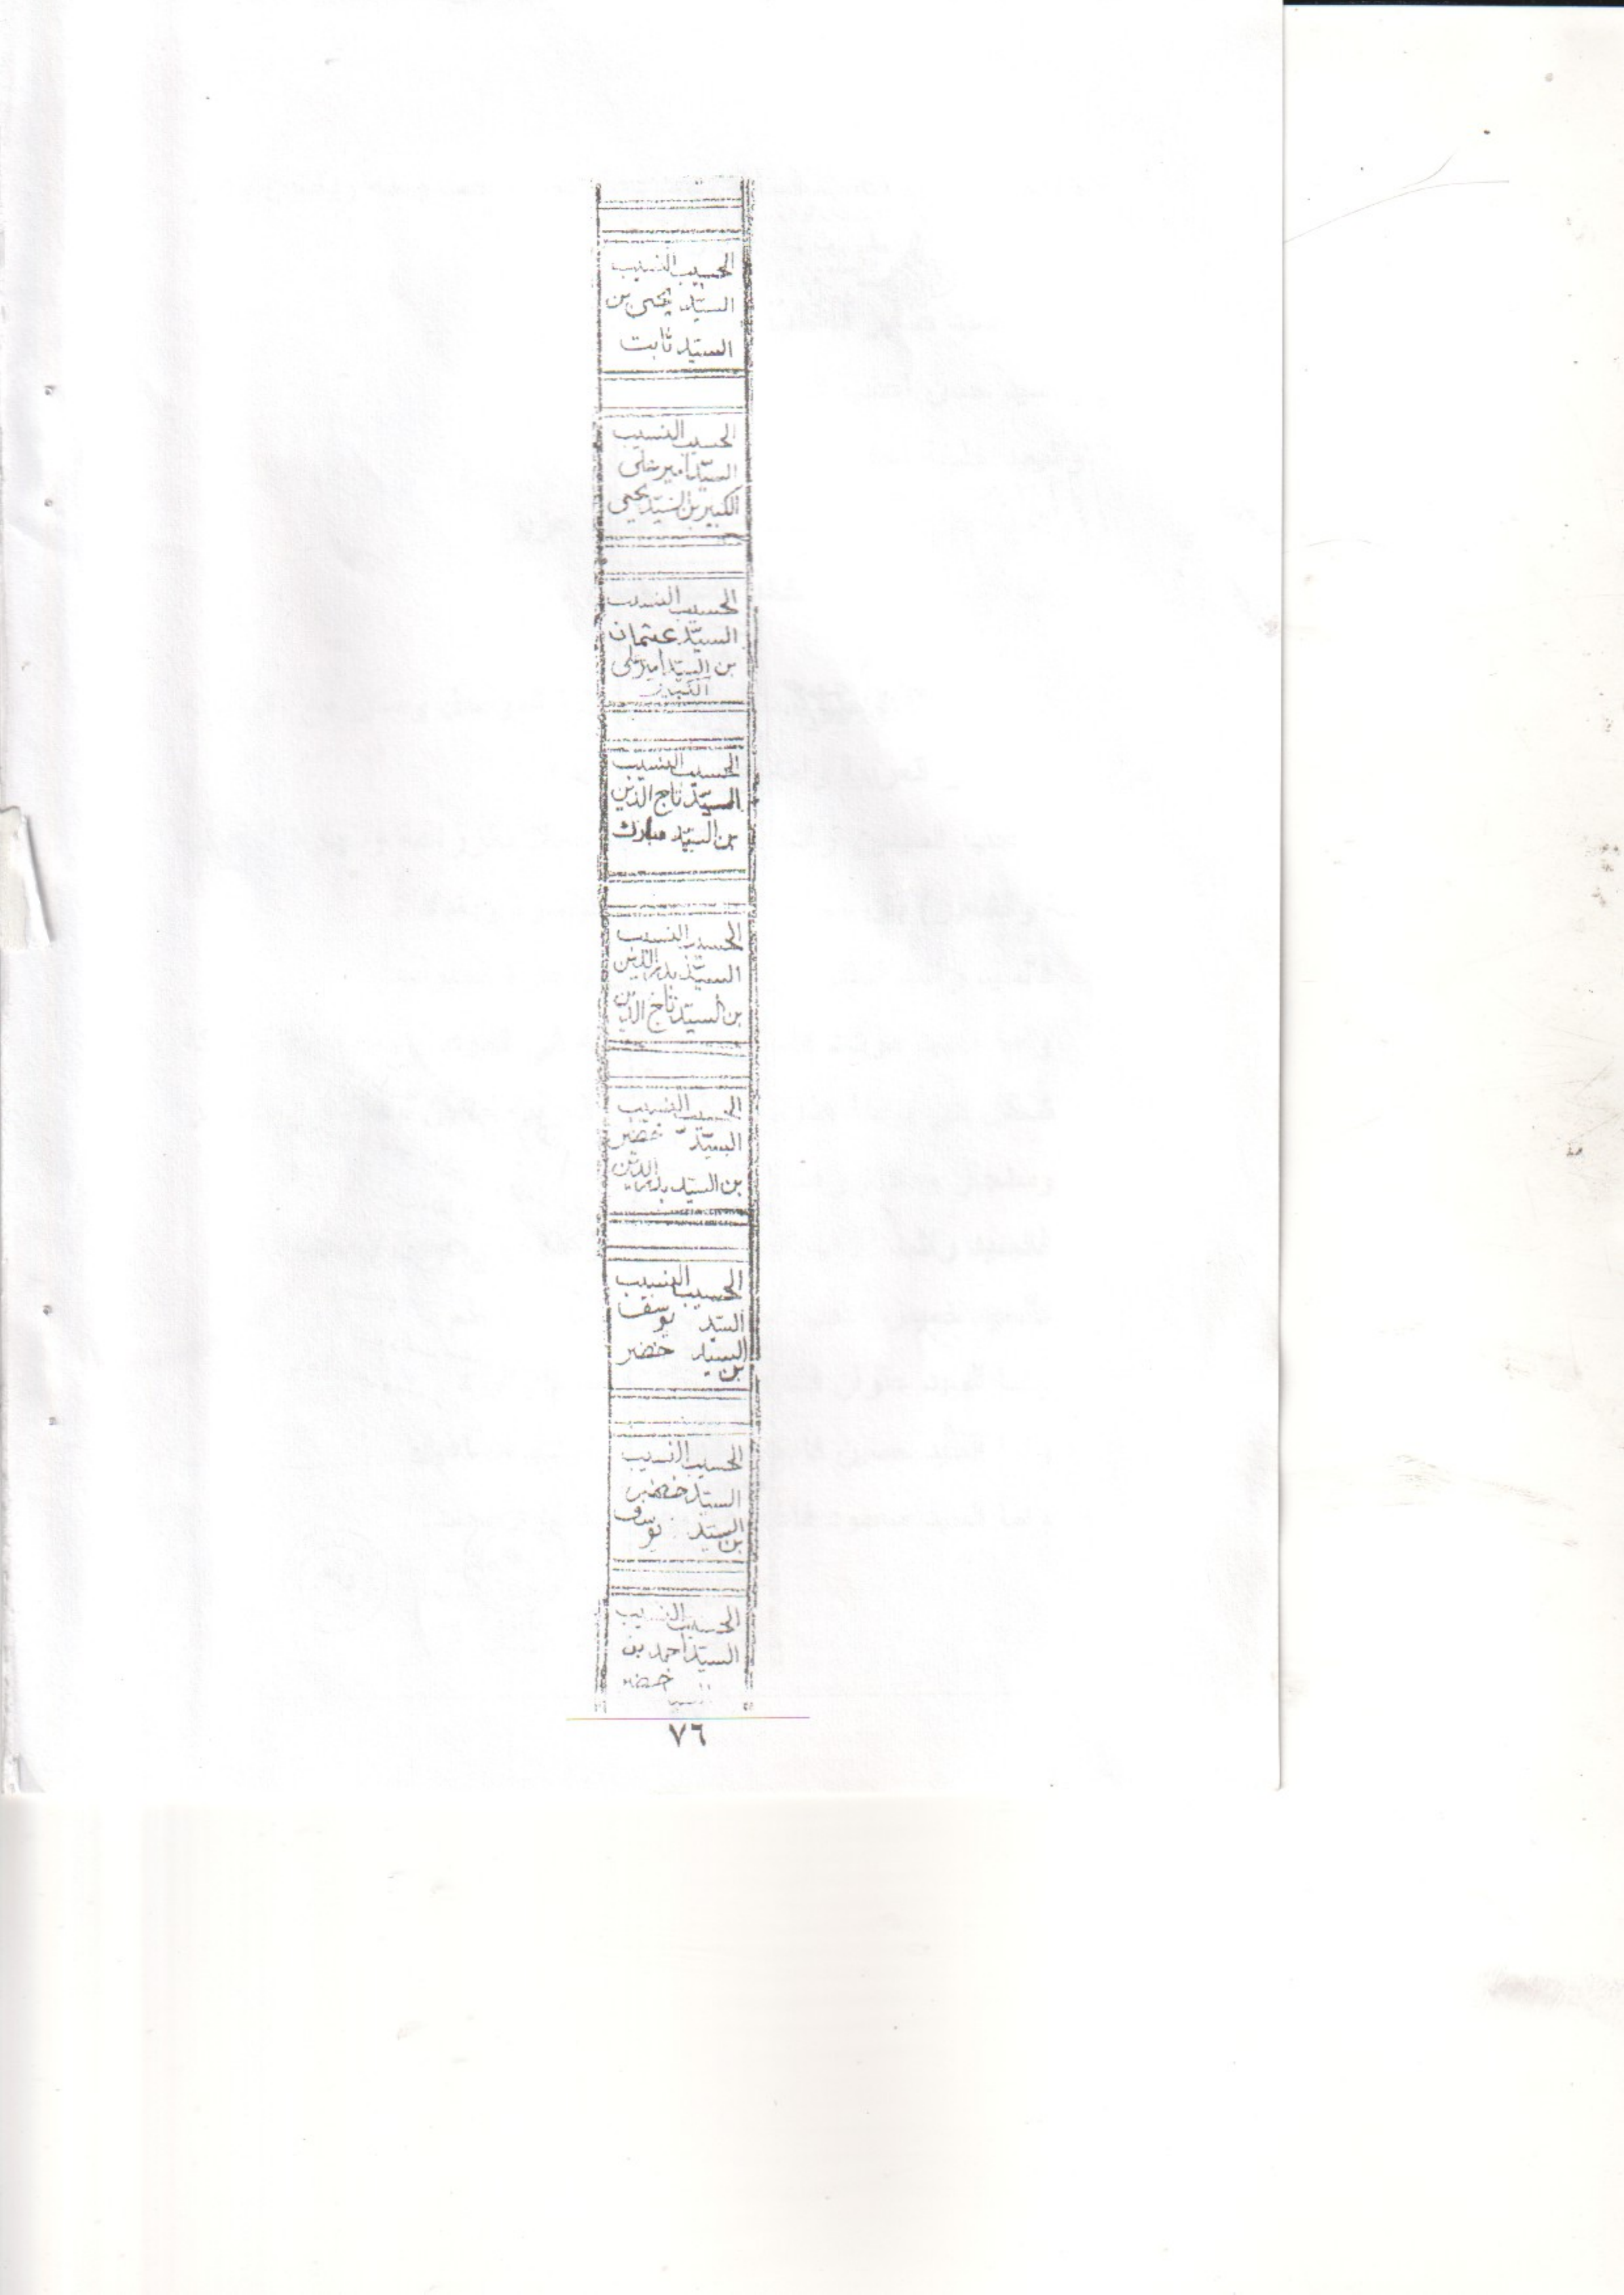 الحسيب النسيب
السيّد يحيى بن
السيّد ثابت
الحسيب النسيب
السيّد امير علي
الكبير بن السيّد يحيى
الحسيب النسيب
السيّد عثمان
بن السيّد امير علي
الكبير
الحسيب النسيب
السيّد تاج الدّين
بن السيّد مبارك
الحسيب النسيب
السيّد بدر الدّين
بن السيّد تاج الدّين
الحسيب النسيب
السيّد خضر
بن السيّد بدر الدّين
الحسيب النسيب
السيّد يوسف
بن السيّد خضر
الحسيب النسيب
السيّد خضر
بن السيّد يوسف
الحسيب النسيب
السيّد احمد بن
خضر
٧٦